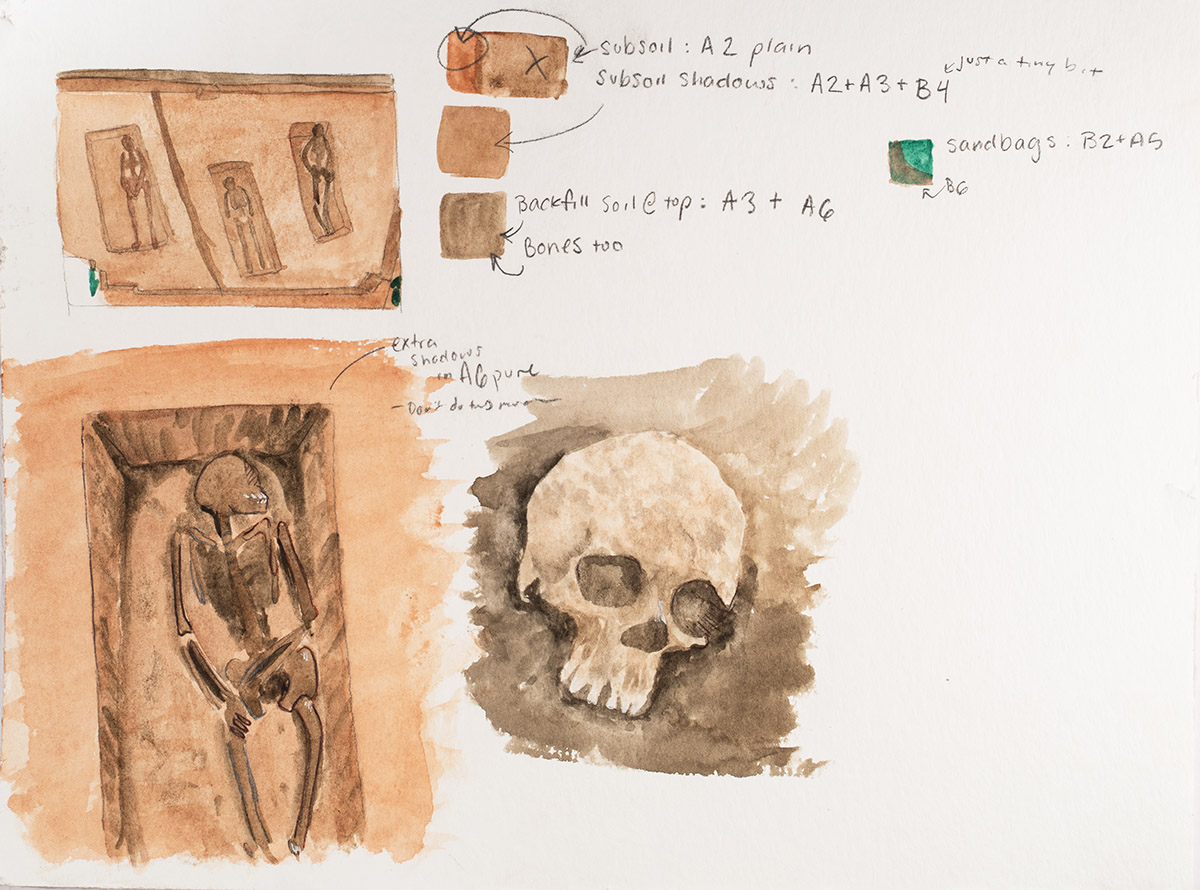 subsoil : A2 plain
subsoil shadows : A2+A3+B4
just a tiny bit
sandbags : B2+A5
B6
Backfill soil @ top : A3 + A6
Bones too
extra
shadows
in A6 pure
- Don't do this
X